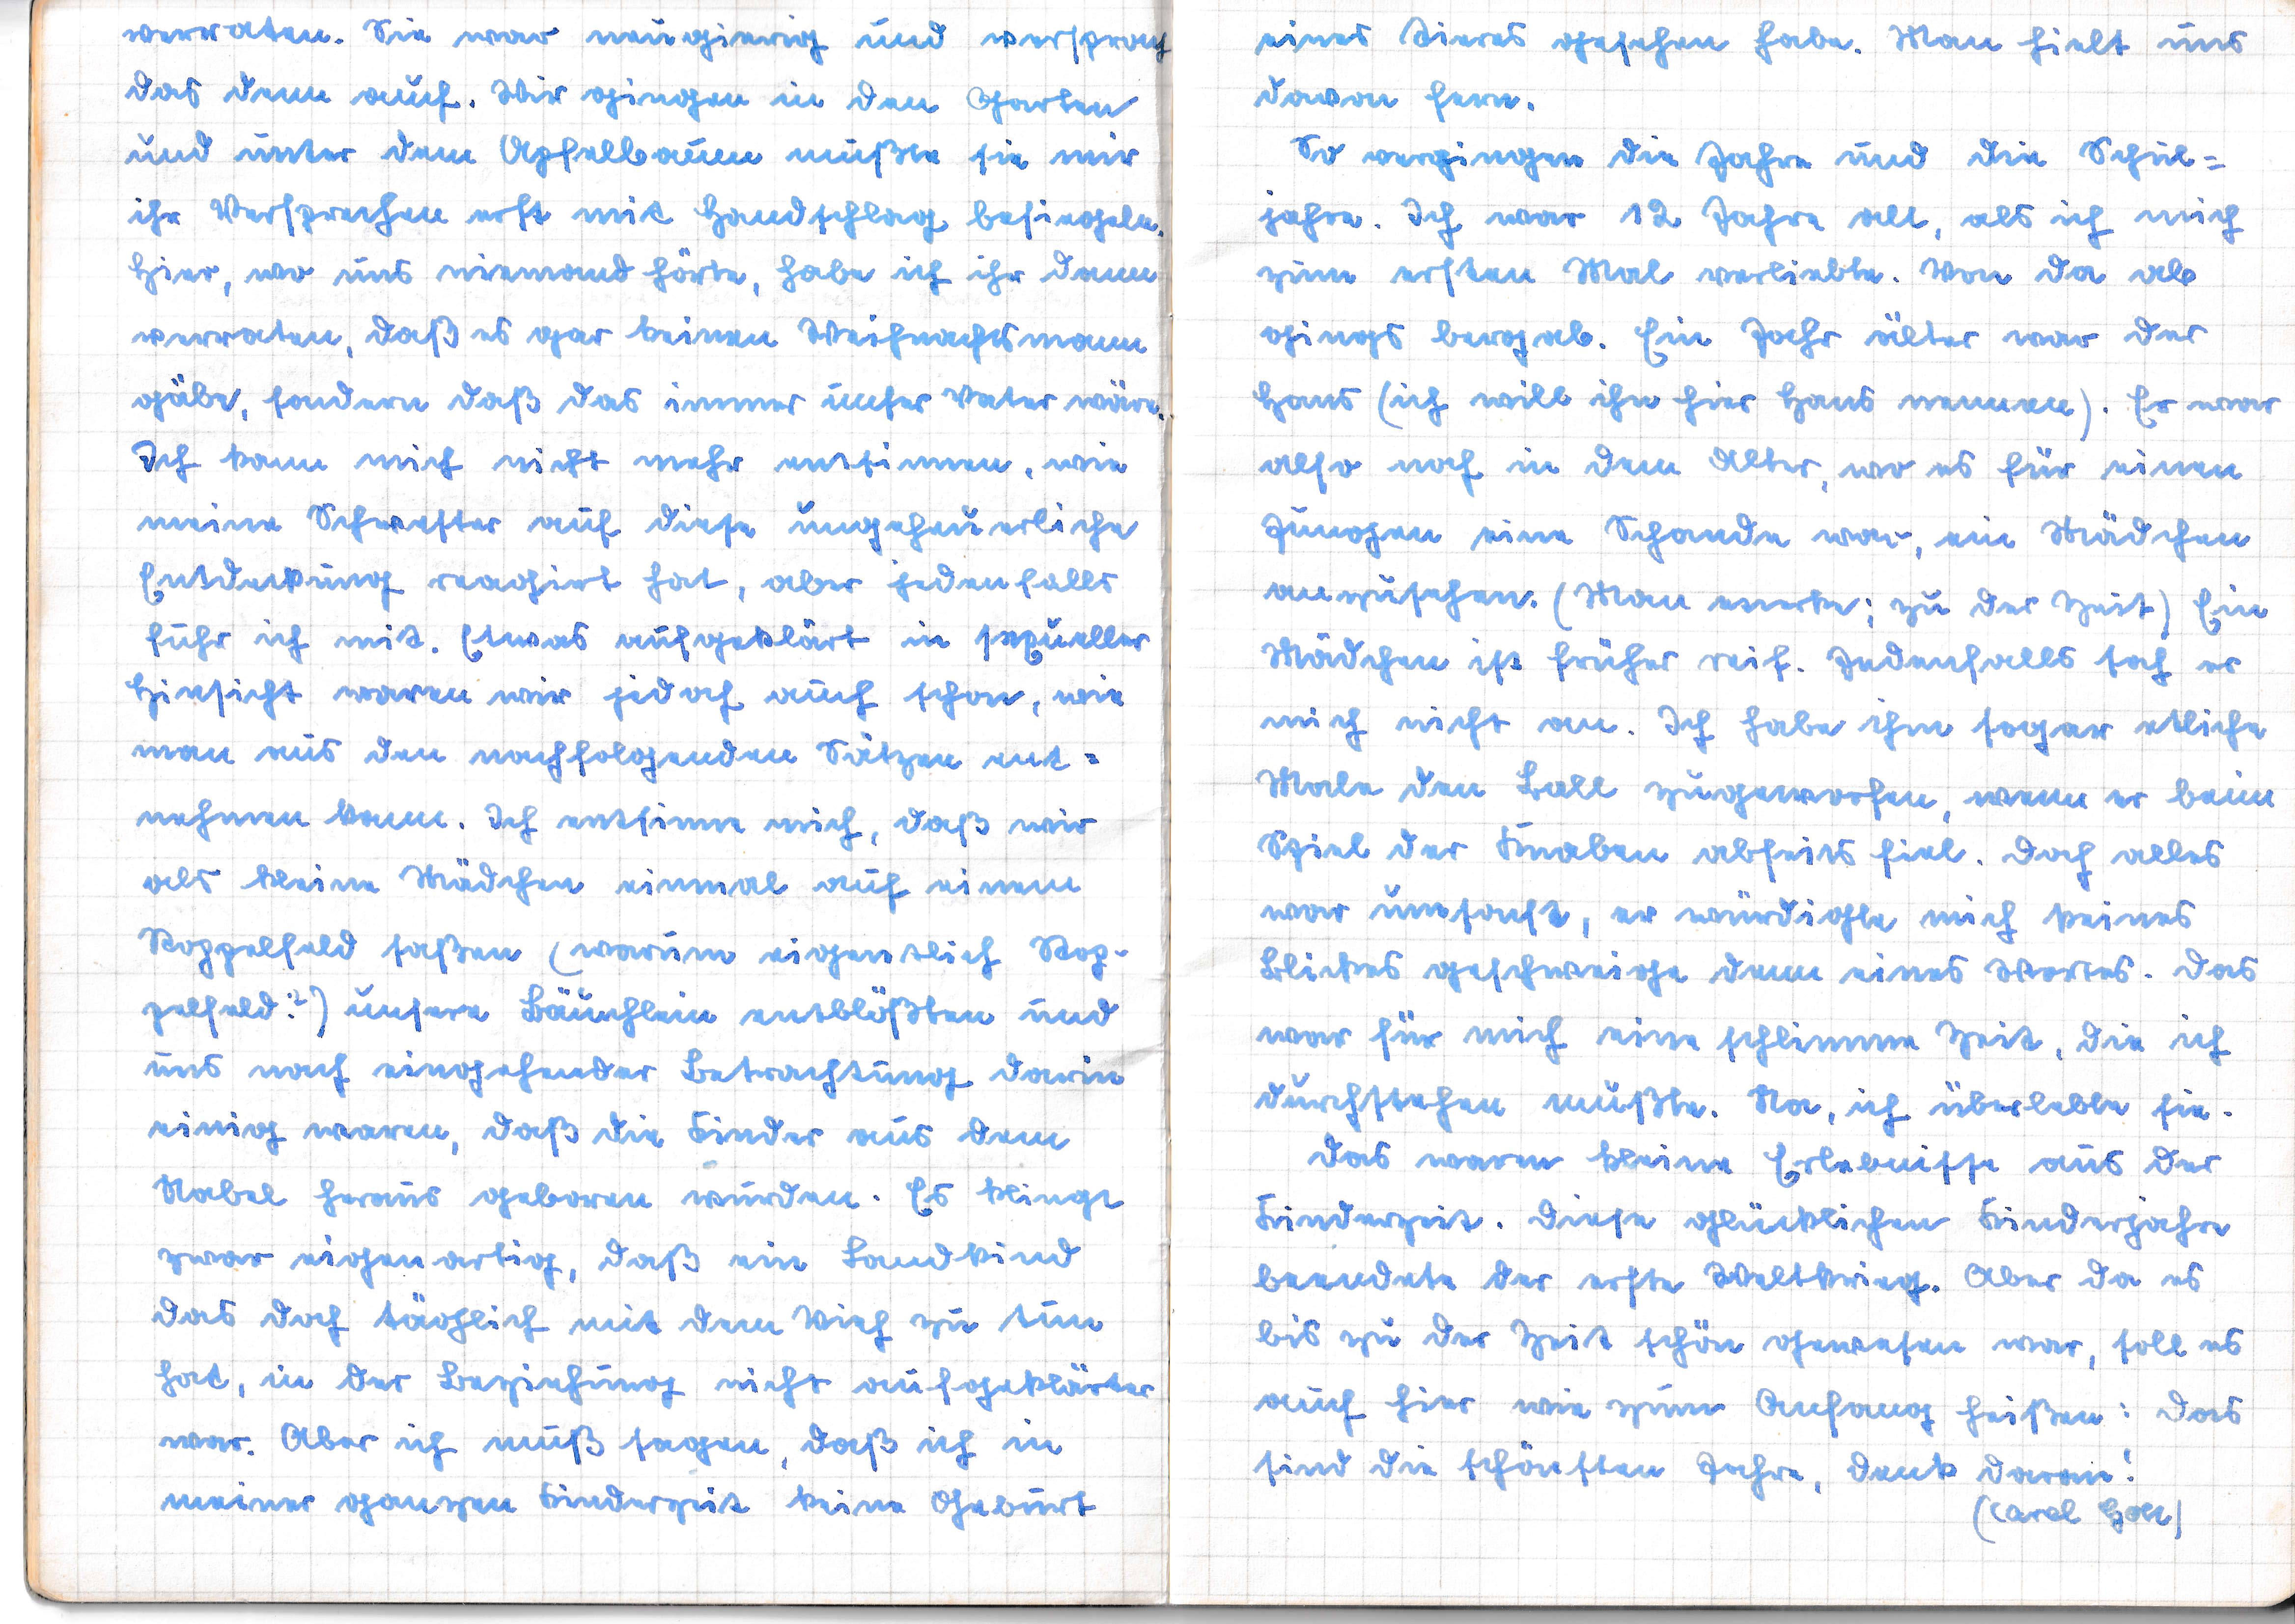 verraten. Sie war neugierig und versprach
das denn auch. Wir gingen in den Garten
und unter dem Apfelbaum mußte sie mir
ihr Versprechen erst mit Handschlag besiegeln.
Hier, wo uns niemand hörte, habe ich ihr dann
verraten, daß es gar keinen Weihnachtsmann
gäbe, sondern daß das immer unser Vater wäre.
Ich kann mich nicht mehr entsinnen, wie
meine Schwester auf diese ungeheuerliche
Entdeckung reagirt hat, aber jedenfalls
fuhr ich mit. Etwas aufgeklärt in sexueller
Hinsicht waren wir jedoch auch schon, wie
man aus den nachfolgenden Sätzen ent=
nehmen kann. Ich entsinne mich, daß wir
als kleine Mädchen einmal auf einem
Stoppelfeld saßen (warum eigentlich Stop-
pelfeld?) unsere Bäuchlein entblößten und
uns nach eingehender Betrachtung darin
einig waren, daß die Kinder aus dem
Nabel heraus geboren würden. Es klingt
zwar eigenartig, daß ein Landkind
das doch täglich mit dem Vieh zu tun
hat, in der Beziehung nicht aufgeklärter
war. Aber ich muß sagen, daß ich in
meiner ganzen Kinderzeit keine Geburt
eines Tieres gesehen habe. Man hielt uns
davon fern.
So vergingen die Jahre und die Schul=
jahre. Ich war 12 Jahre alt, als ich mich
zum ersten Mal verliebte. Von da ab
gings bergab. Ein Jahr älter war der
Hans (ich will ihn hier Hans nennen). Er war
also noch in dem Alter, wo es für einen
Jungen eine Schande war, ein Mädchen
anzusehen. (Man merke; zu der Zeit) Ein
Mädchen ist früher reif. Jedenfalls sah er
mich nicht an. Ich habe ihm sogar etliche
Male den Ball zugeworfen, wenn er beim
Spiel der Knaben abseits fiel. Doch alles
war umsonst, er würdigte mich keines
Blickes geschweige denn eines Wortes. Das
war für mich eine schlimme Zeit, die ich
durchstehen mußte. Na, ich überlebte sie.
Das waren kleine Erlebnisse aus der
Kinderzeit. Diese glücklichen Kinderjahre
beendete der erste Weltkrieg. Aber da es
bis zu der Zeit schön gewesen war, soll es
auch hier wie zum Anfang heißen: das
sind die schönsten Jahre, denk daran!
(Carel Gott)